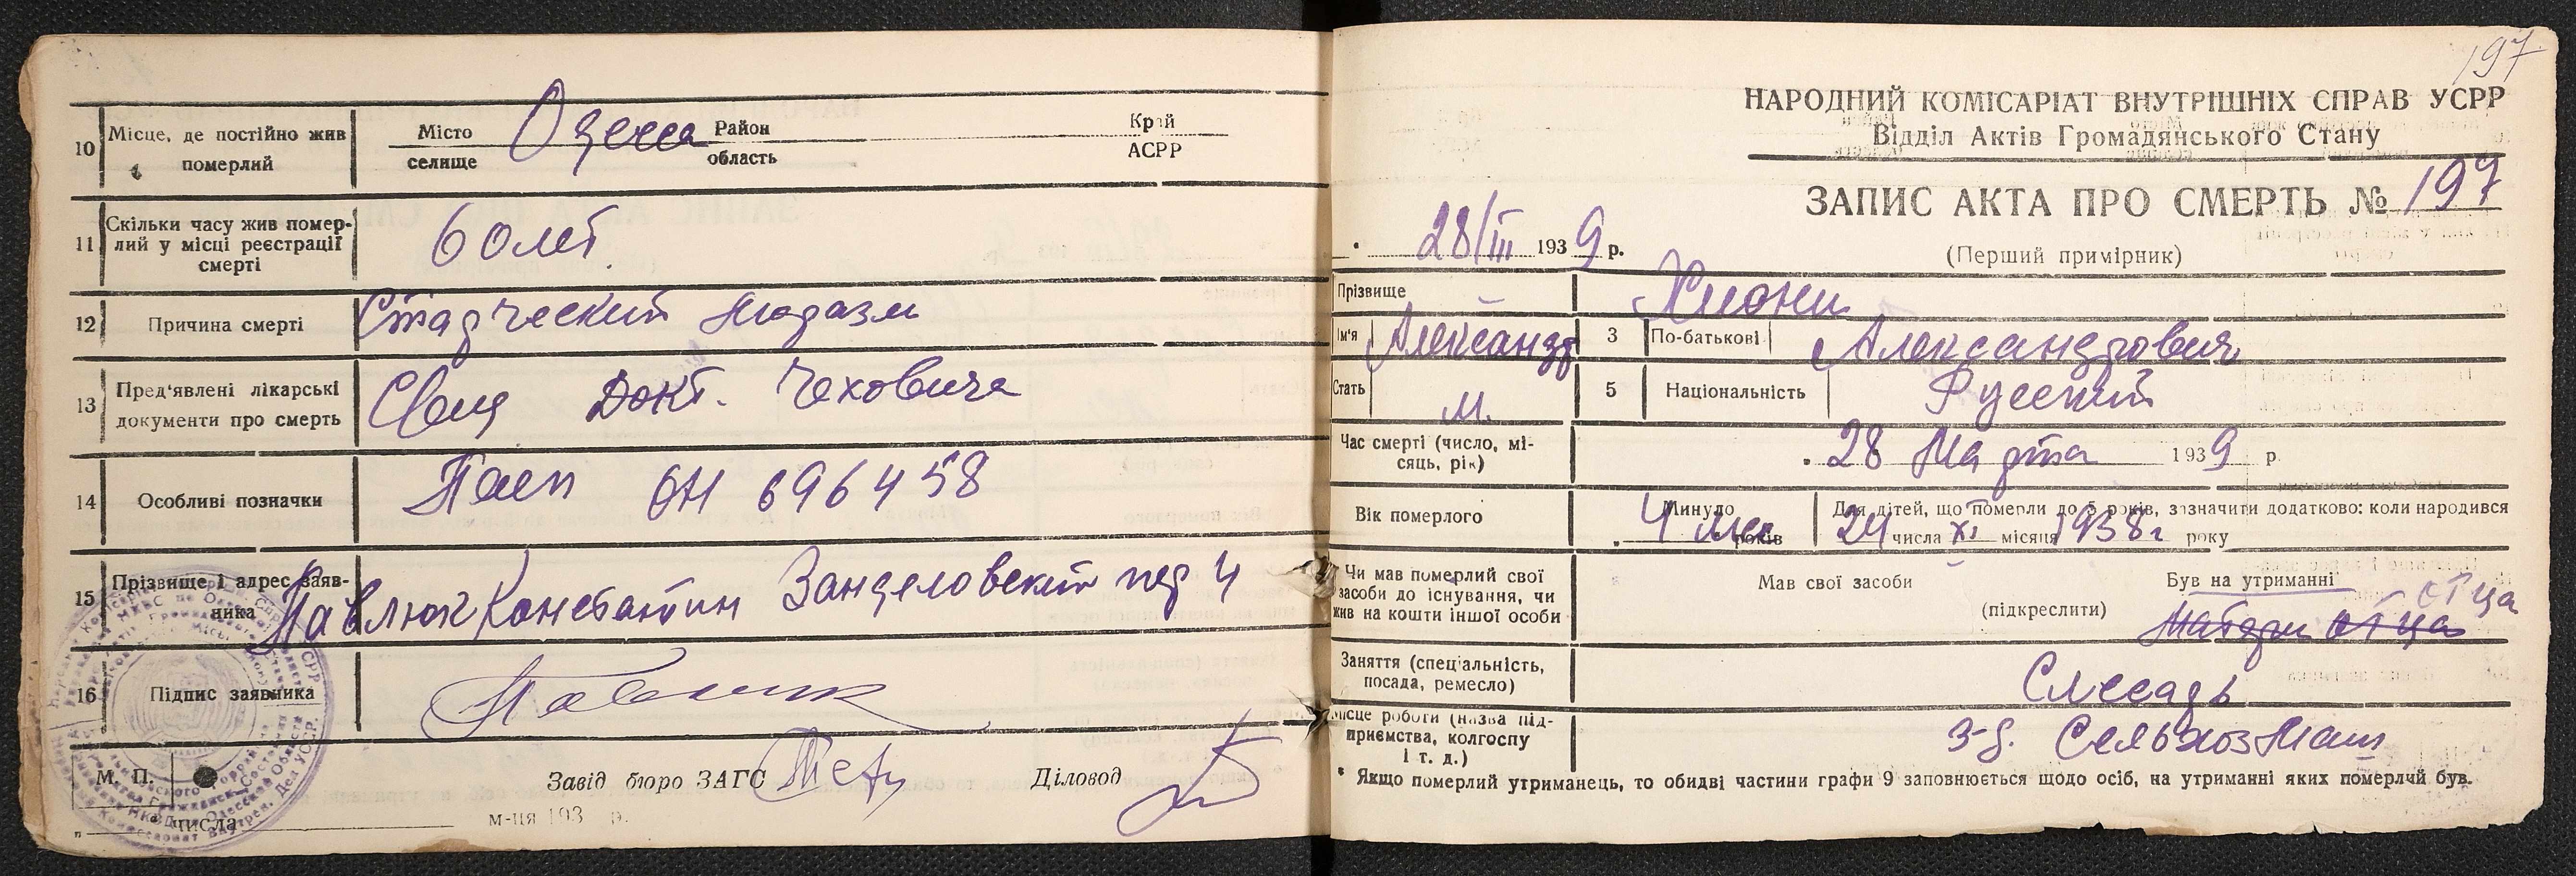 10 Місце, де постійно жив померлий
Місто селище Одесса Район область Край АСРР
11 Скільки часу жив померлий у місці реєстрації смерті
6 олет.
12 Причина смерті
13 Пред'явлені лікарські документи про смерть
Свид Докт. Чеховича
14 Особливі позначки
Пасп ОН 696458
15 Прізвище і адрес заявника
Павлюк Константин пер 4
16 Підпис заявника
Павлюк
М. П.
Завід бюро ЗАГС
Діловод
„ числа м-ця 193 р.
197
НАРОДНИЙ КОМІСАРІАТ ВНУТРІШНІХ СПРАВ УСРР
Відділ Актів Громадянського Стану
ЗАПИС АКТА ПРО СМЕРТЬ № 197
28/III 1939 р.
(Перший примірник)
Прізвище Хиони
Ім'я Александр 3 По-батькові Александрович
Стать м. 5 Національність Русский
Час смерті (число, місяць, рік)
28 Марта 1939 р
Вік померлого
Минуло 4 мес років
Для дітей, що померли до 5 років, зазначити додатково: коли народився
24 числа XI місяця 1938 г року
Чи мав померлий свої засоби до існування, чи жив на кошти іншої особи
Мав свої засоби
(підкреслити)
Був на утриманні отца
Матери отца
Заняття (спеціальність, посада, ремесло)
Слесарь
Місце роботи (назва підприємства, колгоспу і т. д.)
З-д. СельхозМаш
* Якщо померлий утриманець, то обидві частини графи 9 заповнюється щодо осіб, на утриманні яких померлий був.